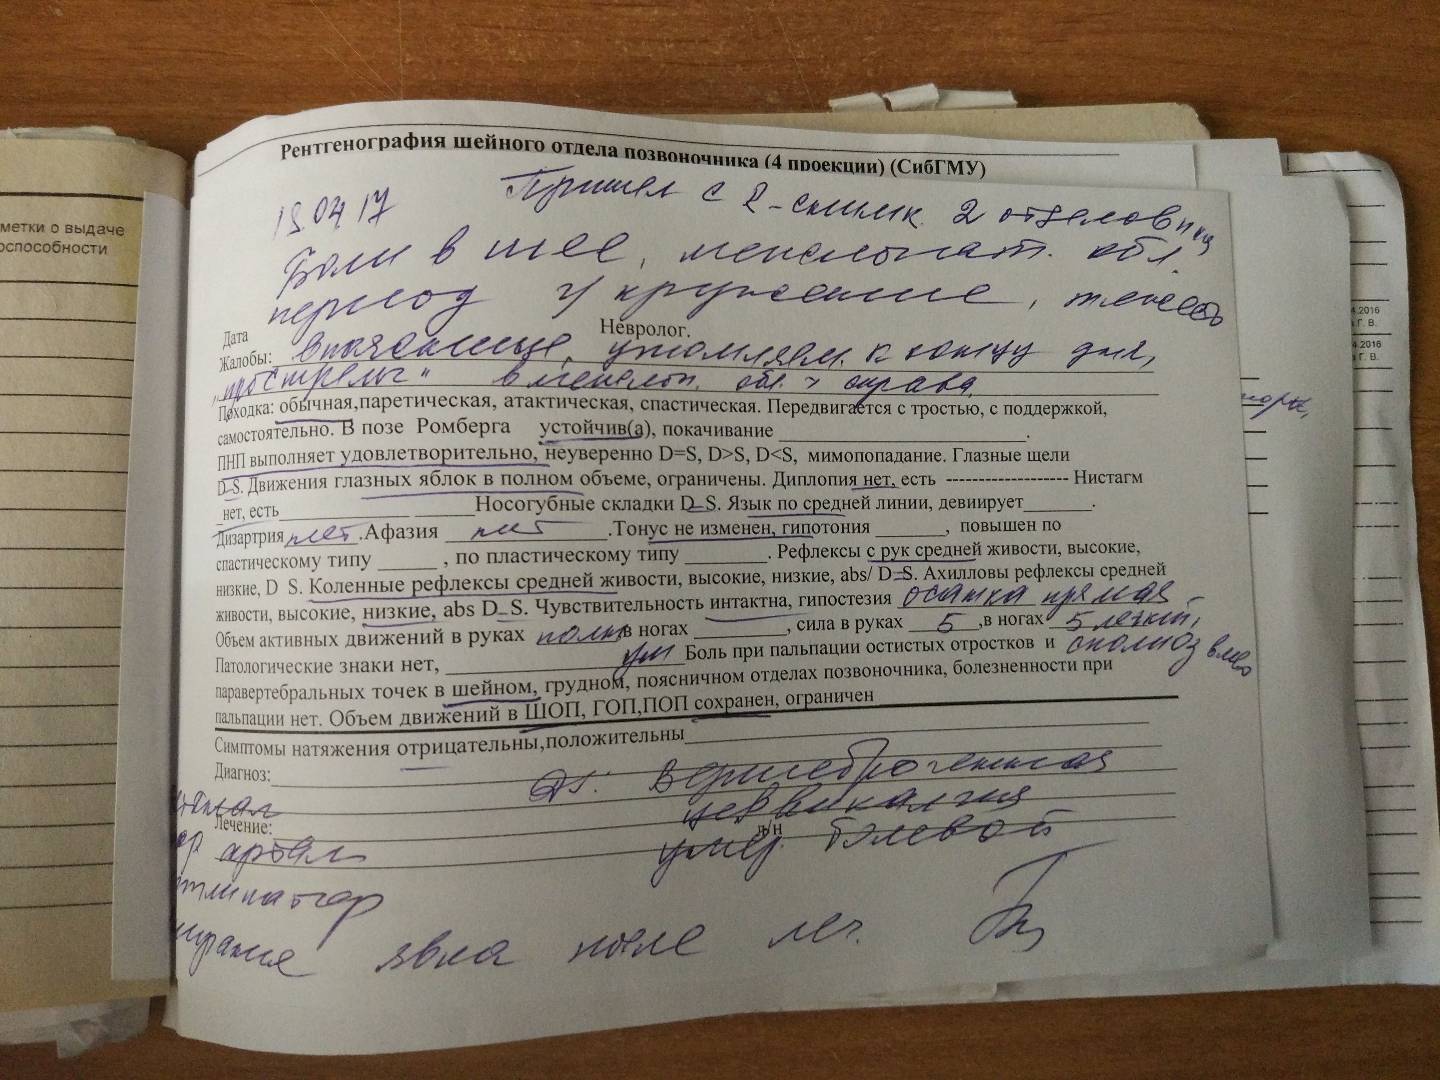 метки о выдаче
оспособности
Рентгенография шейного отдела позвоночника (4 проекции) (СибГМУ)
18.04 17 Пришел с R-снимк. 2 отделов п-ка
Боли в шее, межлопат. обл.
период г/кружение, тяжесть
Дата Невролог.
Жалобы: в пояснице, утомляем. к концу дня,
"прострелы" в межлоп. обл > справа.
Походка: обычная,паретическая, атактическая, спастическая. Передвигается с тростью, с поддержкой,
самостоятельно. В позе Ромберга устойчив(а), покачивание ____.
ПНП выполняет удовлетворительно, неуверенно D=S, D>S, D<S, мимопопадание. Глазные щели
D=S. Движения глазных яблок в полном объеме, ограничены. Диплопия нет, есть ------------------- Нистагм
нет, есть____ ____Носогубные складки D=S. Язык по средней линии, девиирует____.
Дизартрия нет.Афазия нет.Тонус не изменен, гипотония ____, повышен по
спастическому типу ____, по пластическому типу ____. Рефлексы с рук средней живости, высокие,
низкие, D S. Коленные рефлексы средней живости, высокие, низкие, abs/ D=S. Ахилловы рефлексы средней
живости, высокие, низкие, abs D=S. Чувствительность интактна, гипостезия осанка прямая
Объем активных движений в руках полн в ногах ____, сила в руках 5,в ногах 5 легкий,
Патологические знаки нет, ____ ум Боль при пальпации остистых отростков и сколиоз влево
паравертебральных точек в шейном, грудном, поясничном отделах позвоночника, болезненности при
пальпации нет. Объем движений в ШОП, ГОП,ПОП сохранен, ограничен
Симптомы натяжения отрицательны,положительны____
Диагноз: Ds: Вертеброгенная
цервикалгия
Лечение: п/н
артял умер. болевой
явка после леч.
4.2016
а Г. В.
4.2016
а Г. В.